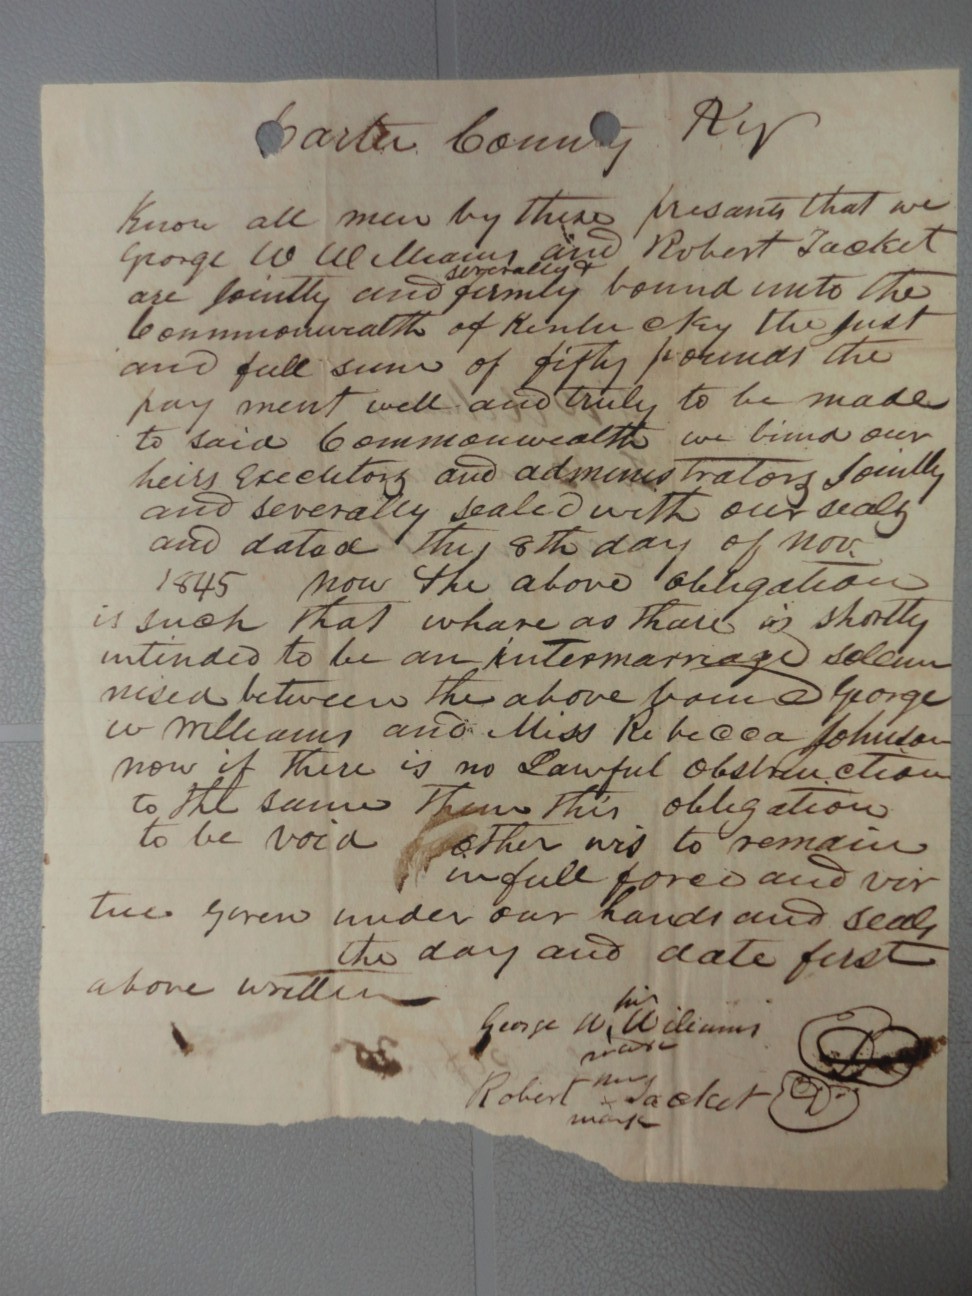 Carter County Ky
Know all men by these presants that we
George W Williams and Robert Jacket
severally &
are Jointly and firmly bound unto the
Commonwealth of Kentucky the Just
and full sum of fifty pounds the
pay ment well and truly to be made
to said Commonwealth we bind our
heirs Executors and administrators Jointly
and severally sealed with our seals
and dated this 8th day of Nov.
1845 now the above obligation
is such that whare as thare is shortly
intended to be an intermarriage solem
nised between the above bound George
W Williams and Miss Rebecca Johnson
now if there is no Lawful obstruction
to the same then this obligation
to be void other wis to remain
in full force and vir
tue Given under our hands and seals
the day and date first
above written
his
George W, Williams
mark
his
Robert x Jacket
mark